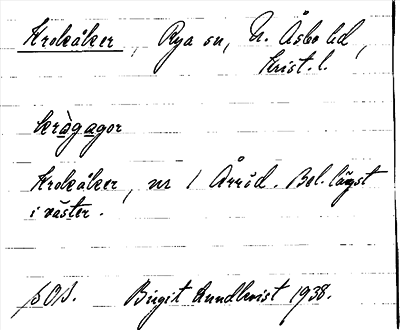 Krokåker, Rya sn, N. Åsbo hd,
Krist. l.
kràgagor
Krokåker, nr 1 Årröd. Bel. längst
i väster.
SOA. Birgit Lundkvist 1938.